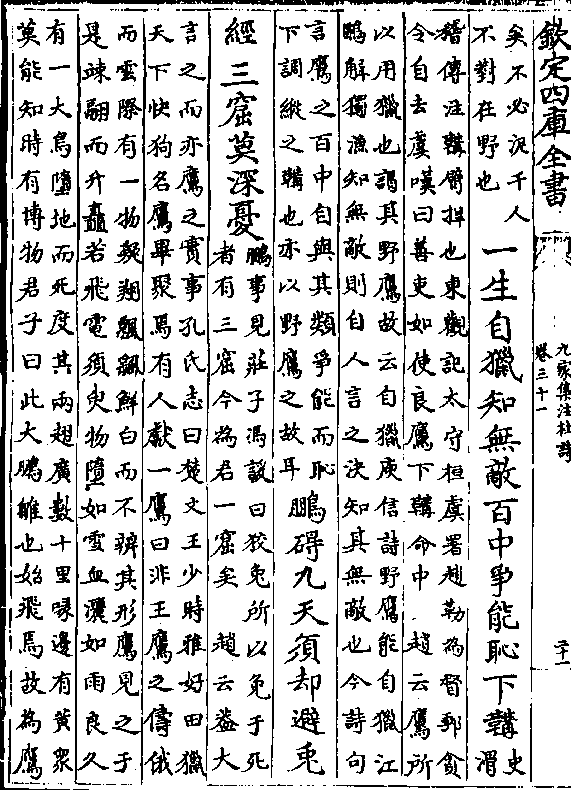 欽定四庫全書
九家集注杜詩
卷三十一
二十一
矣不必泥千人
不對在野也
一生自獵知無敵百中争能恥下韝
史
滑
稽傳注韝臂捍也東觀記太守桓虞署趙勒為督郵貪
令自去虞嘆曰善吏如使良鷹下韝命中 趙云鷹所
以用獵也謂其野鷹故云自獵庾信詩野鷹能自獵江
鷗解獨漁知無敵則自人言之決知其無敵也今詩句
言鷹之百中自與其類爭能而恥
下調縱之韝也亦以野鷹之故耳
鵬礙九天須却避兎
經三窟莫深憂
鵬事見莊子馮諼曰狡兎所以免于死
者有三窟今為君一窟矣 趙云蓋大
言之而亦鷹之實事孔氏志曰楚文王少時雅好田獵
天下快狗名鷹畢聚焉有人獻一鷹曰非王鷹之儔俄
而雲際有一物凝翔飄颻鮮白而不辨其形鷹見之于
是竦翮而升矗若飛電須臾物墮如雪血灑如雨良久
有一大鳥墮地而死度其兩翅廣數十里喙邊有黄衆
莫能知時有博物君子曰此大鵬雛也始飛焉故為鷹